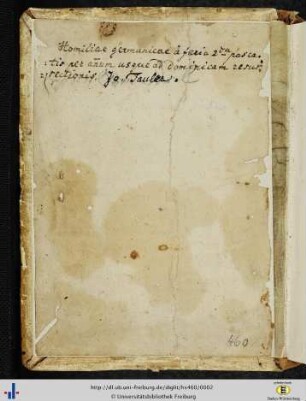 Homiliae germanicae à feria 2da pasca-
:tis per anum usque ad dominicam resur-
:rectionis. Jo. Tauler.
460
http://dl.ub.uni-freiburg.de/diglit/hs460/0002
© Universitätsbibliothek Freiburg